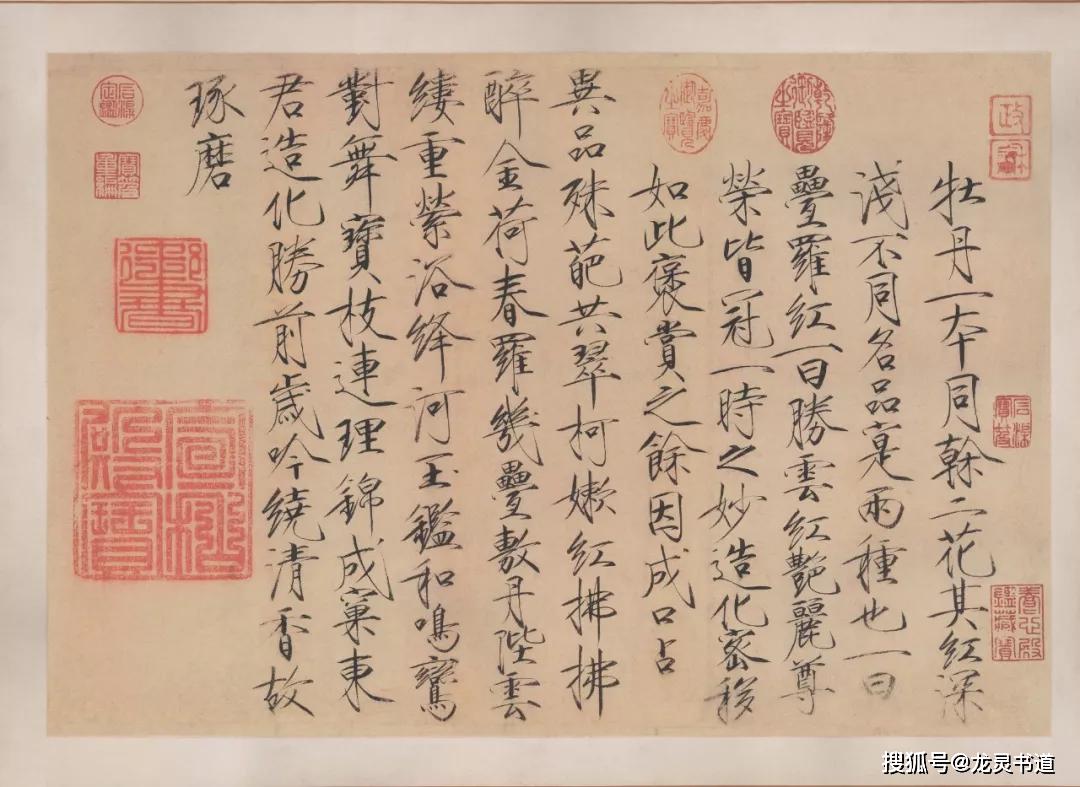 牡丹一本同榦二花其红深
淺不同名品寔兩種也一曰
疊羅红一曰勝雲红艷麗尊
榮皆冠一時之妙造化密移
如此褒賞之餘因成口占
異品殊葩共翠柯嫩红拂拂
醉金荷春羅幾疊敷丹陛雲
縷重縈浴絳河玉鑑和鳴鸞
對舞寶枝連理錦成窠東
君造化勝前歳吟繞清香故
琢磨
政
龢
乾隆御覽之寶
嘉慶御覽之寶
石渠寶笈
養心殿鑑藏寶
石渠定鑑
寶笈重編
宣統
搜狐号@龙灵书道